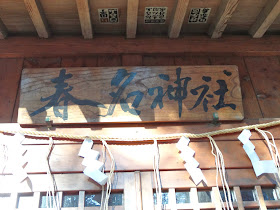 春名神社